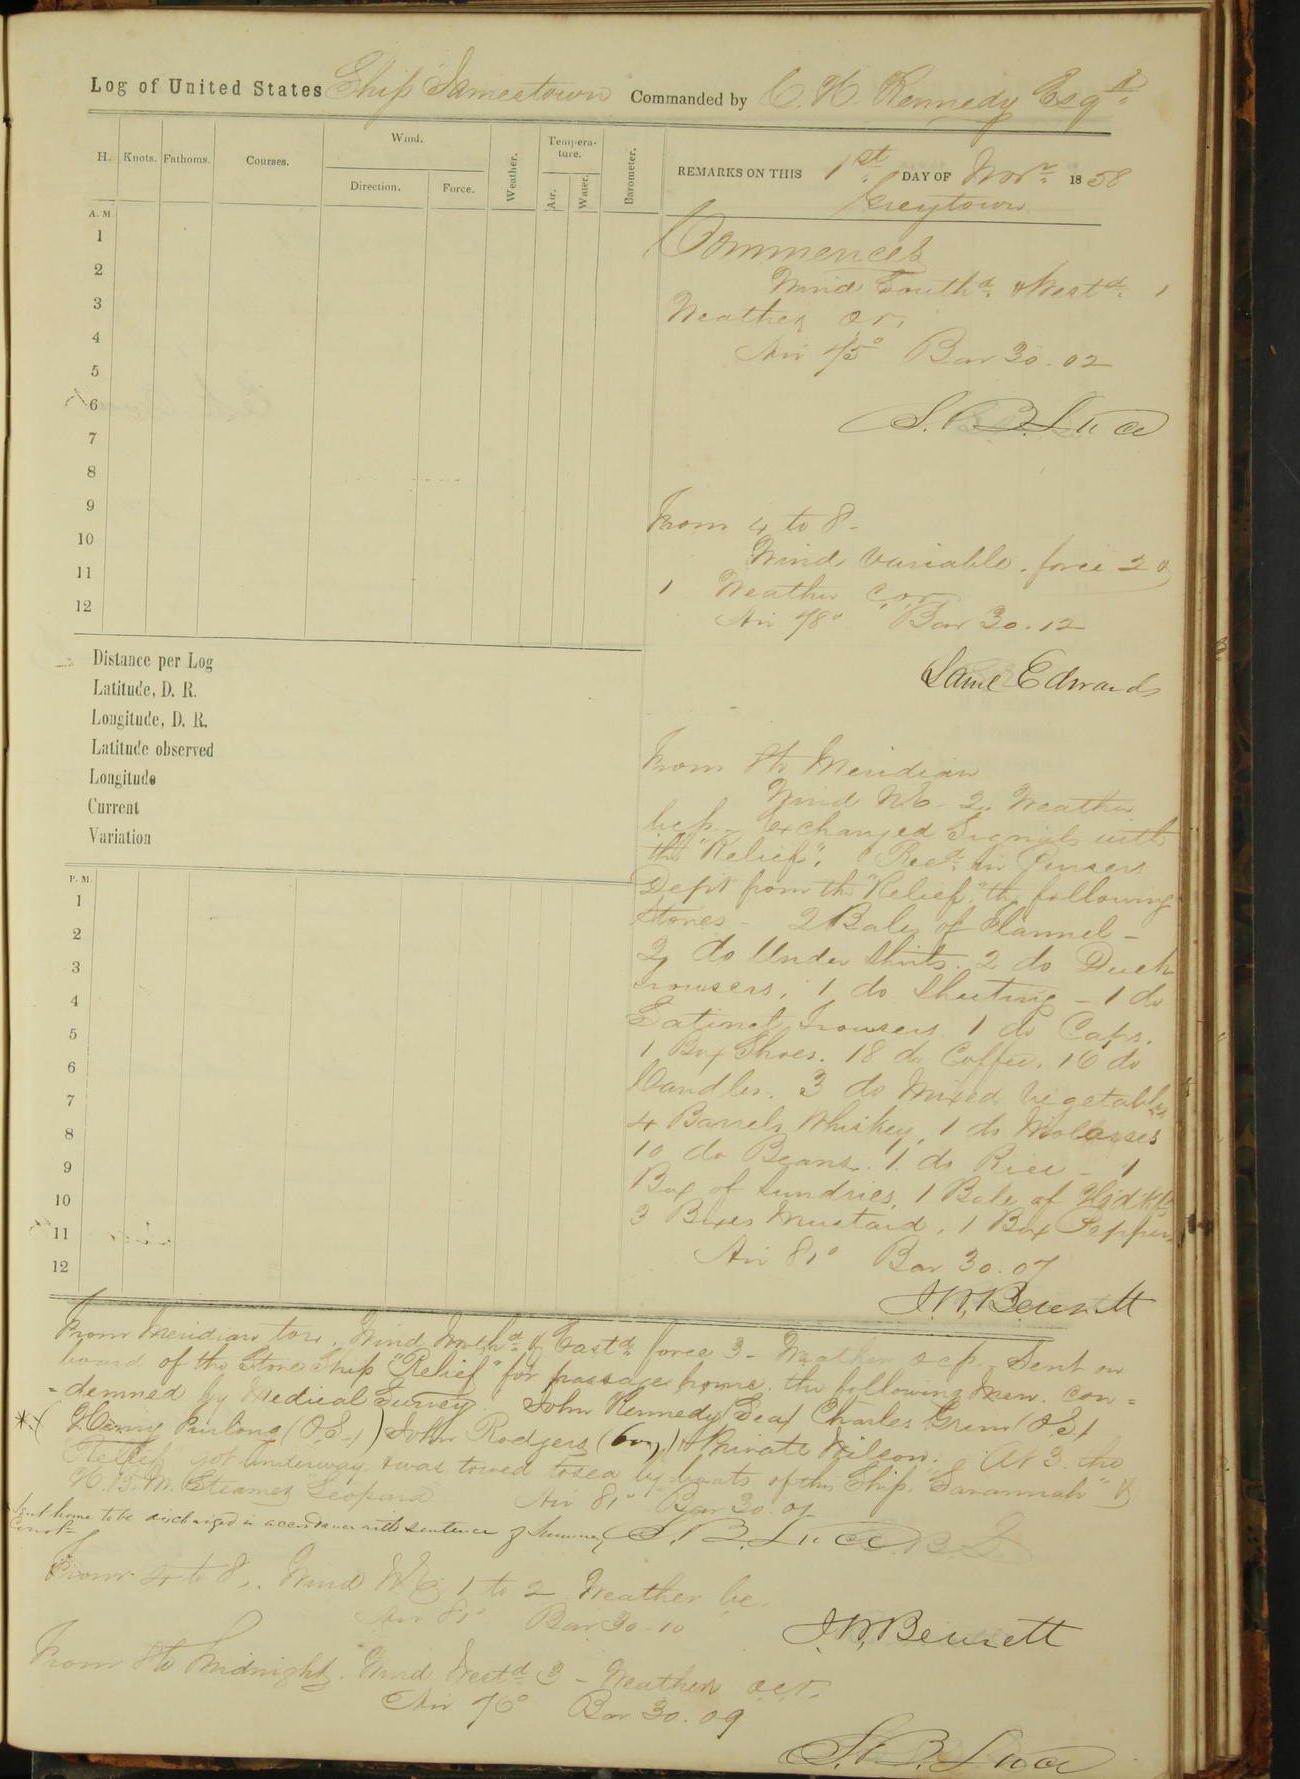 Log of United States Ship Jamestown Commanded by C. H. Kennedy Esqr
H. Knots. Fathoms. Courses. Wind. Direction. Force. Weather. Tempera-ture. Air. Water. Barometer.
REMARKS ON THIS 1st DAY OF Novr 1858
Greytown
A. M.
1
2
3
4
5
6
7
8
9
10
11
12
Distance per Log
Latitude, D. R.
Longitude, D. R.
Latitude observed
Longitude
Current
Variation
P. M.
1
2
3
4
5
6
7
8
9
10
11
12
Commences
Wind Southd & Westd 1
Weather or.
Air 75° Bar 30.02
S. B. Luce
From 4 to 8 -
Wind variable. force 2 &
1 Weather c.o.r.
Air 78° Bar 30.12
Edwards
From 8 to Meridian
Wind NE - 2. Weather
bcp - exchanged Signals with
the "Relief". Recd in Pursers
Dept from the "Relief" the following
Stores - 2 Bales of Flannel -
2 do Under Shirts. 2 do Duck
Trousers, 1 do Sheeting - 1 do
Satinet Trousers 1 do Caps.
1 Box Shoes. 18 do Coffee. 16 do
Candles. 3 do Mixed Vegetables
4 Barrels Whiskey, 1 do Molasses
10 do Beans. 1 do Rice - 1
Box of Sundries, 1 Bale of Hdkfs
3 Boxes Mustard. 1 Box Pepper
Air 81° Bar 30.07
J. W. Bennett
From Meridian to 4. Wind Northd & Eastd force 3 - Weather ocp - Sent on
board of the Store Ship "Relief" for passage home. the following men. con=
=demned by Medical Survey. John Kennedy (Sea) Charles Grim (O.S.)
*( Henry Purlong (O.S.) ) John Rodgers (boy) & Private Wilson. At 3. the
Relief got underway & was towed to sea by boats of this Ship, "Savannah" &
H. B. M. Steamer Leopard Air 81° Bar 30.07
Sent home to be discharged in accordance with sentence of Summary S. B. Luce
Court
From 4 to 8,. Wind NE 1 to 2 Weather bc.
Air 81° Bar 30.10
J. W. Bennett
From 8 to Midnight. Wind Westd 3 - Weather ocr.
Air 76° Bar 30.09
S. B. Luce